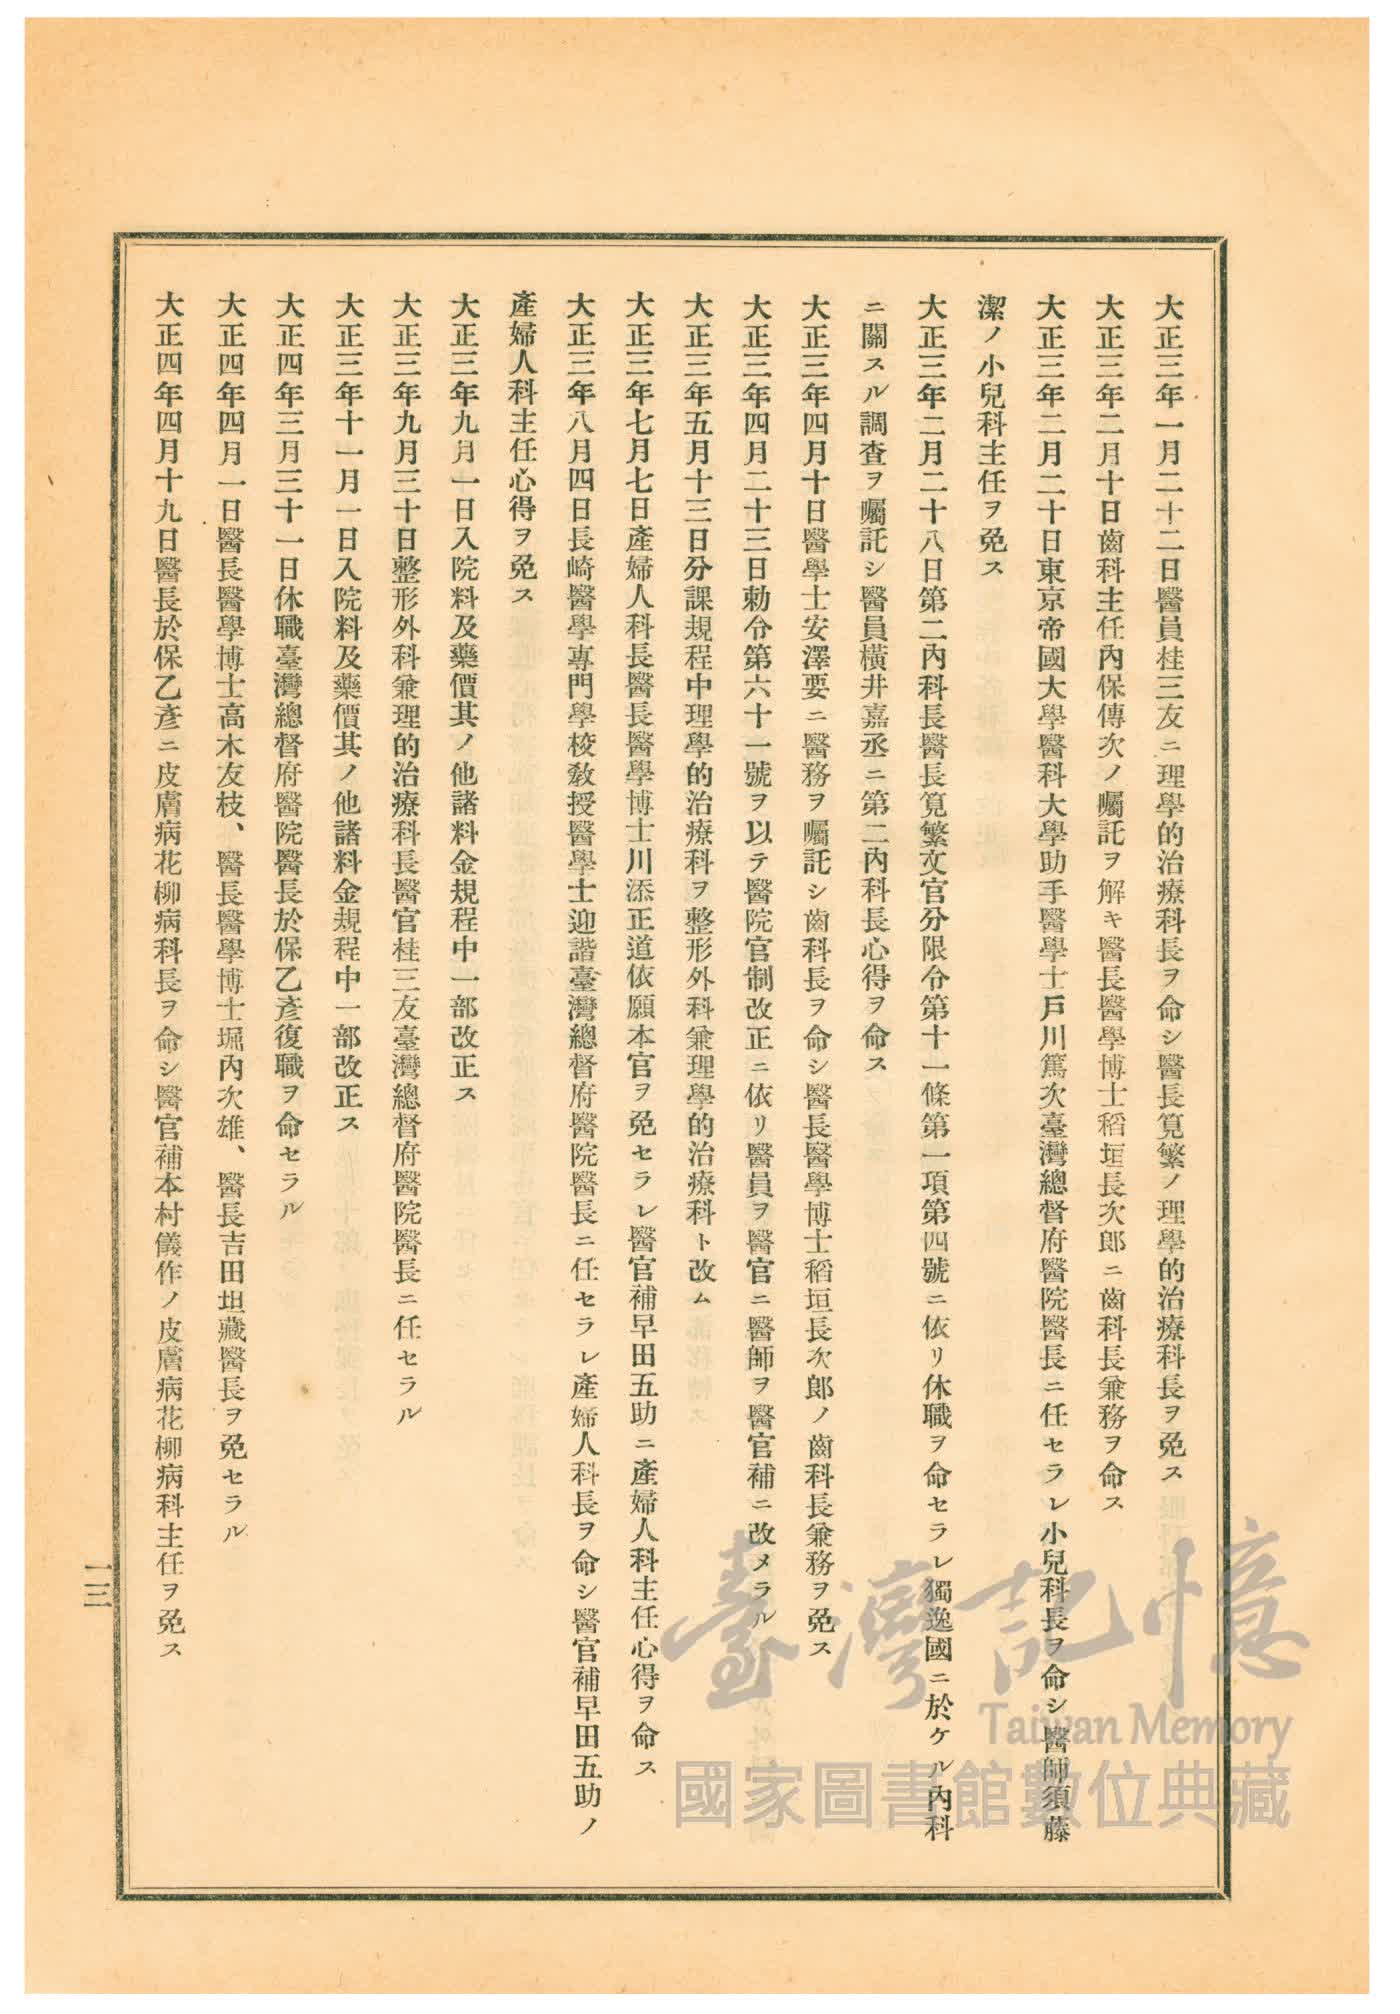 大正三年一月二十二日醫員桂三友ニ理學的治療科長ヲ命シ醫長筧繁ノ理學的治療科長ヲ免ス
大正三年二月十日齒科主任內保傳次ノ囑託ヲ解キ醫長醫學博士稻垣長次郎ニ齒科長兼務ヲ命ス
大正三年二月二十日東京帝國大學醫科大學助手醫學士戶川篤次臺灣總督府醫院醫長ニ任セラレ小兒科長ヲ命シ醫師須藤
潔ノ小兒科主任ヲ免ス
大正三年二月二十八日第二內科長醫長筧繁文官分限令第十一條第一項第四號ニ依リ休職ヲ命セラレ獨逸國ニ於ケル內科
ニ關スル調査ヲ囑託シ醫員橫井嘉丞ニ第二內科長心得ヲ命ス
大正三年四月十日醫學士安澤要ニ醫務ヲ囑託シ齒科長ヲ命シ醫長醫學博士稻垣長次郎ノ齒科長兼務ヲ免ス
大正三年四月二十三日勅令第六十一號ヲ以テ醫院官制改正ニ依リ醫員ヲ醫官ニ醫師ヲ醫官補ニ改メラル
大正三年五月十三日分課規程中理學的治療科ヲ整形外科兼理學的治療科ト改ム
大正三年七月七日產婦人科長醫長醫學博士川添正道依願本官ヲ免セラレ醫官補早田五助ニ產婦人科主任心得ヲ命ス
大正三年八月四日長崎醫學專門學校敎授醫學士迎諧臺灣總督府醫院醫長ニ任セラレ產婦人科長ヲ命シ醫官補早田五助ノ
產婦人科主任心得ヲ免ス
大正三年九月一日入院料及藥價其ノ他諸料金規程中一部改正ス
大正三年九月三十日整形外科兼理的治療科長醫官桂三友臺灣總督府醫院醫長ニ任セラル
大正三年十一月一日入院料及藥價其ノ他諸料金規程中一部改正ス
大正四年三月三十一日休職臺灣總督府醫院醫長於保乙彥復職ヲ命セラル
大正四年四月一日醫長醫學博士高木友枝、醫長醫學博士堀內次雄、醫長吉田坦藏醫長ヲ免セラル
大正四年四月十九日醫長於保乙彥ニ皮膚病花柳病科長ヲ命シ醫官補本村儀作ノ皮膚病花柳病科主任ヲ免ス
一三
臺灣記憶
Taiwan Memory
國家圖書館數位典藏